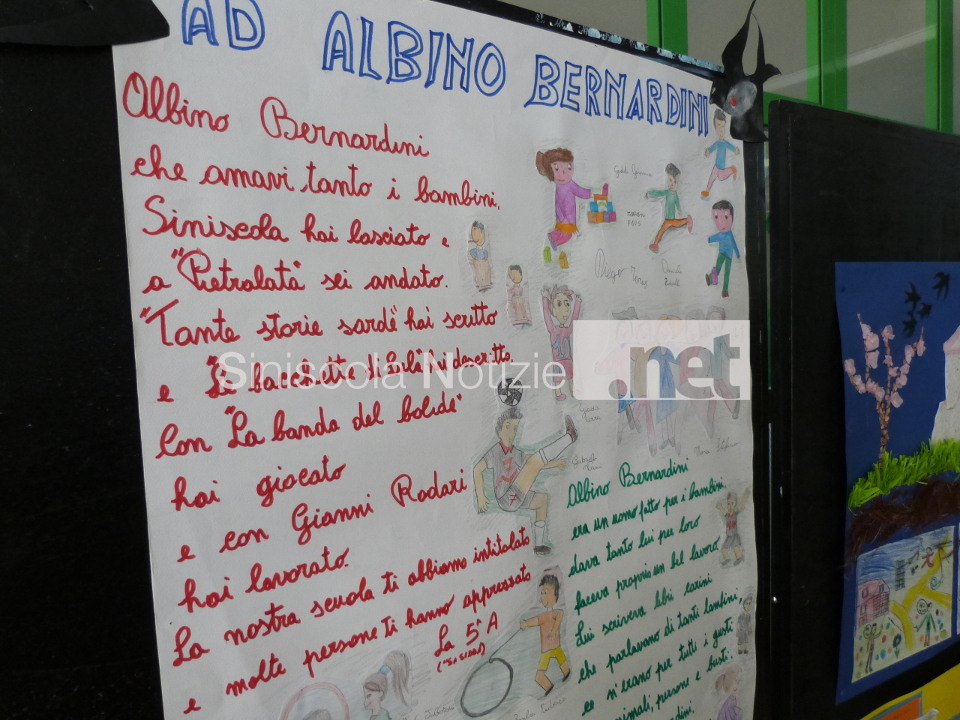 AD ALBINO BERNARDINI
Albino Bernardini
che amavi tanto i bambini,
Siniscola hai lasciato e
a "Pietralata" sei andato.
"Tante storie sarde" hai scritto
e "Le bacchette di Lula" hai descritto.
Con "La banda del bolide"
hai giocato
e con Gianni Rodari
hai lavorato.
La nostra scuola ti abbiamo intitolato
e molte persone ti hanno apprezzato
La 5ª A
Siniscola Notizie .net
Albino Bernardini
era un uomo fatto per i bambini
dava tanto lui per loro
faceva proprio un bel lavoro
Lui scriveva libri carini
che parlavano di tanti bambini,
ce n'erano per tutti i gusti
animali, persone e busti.